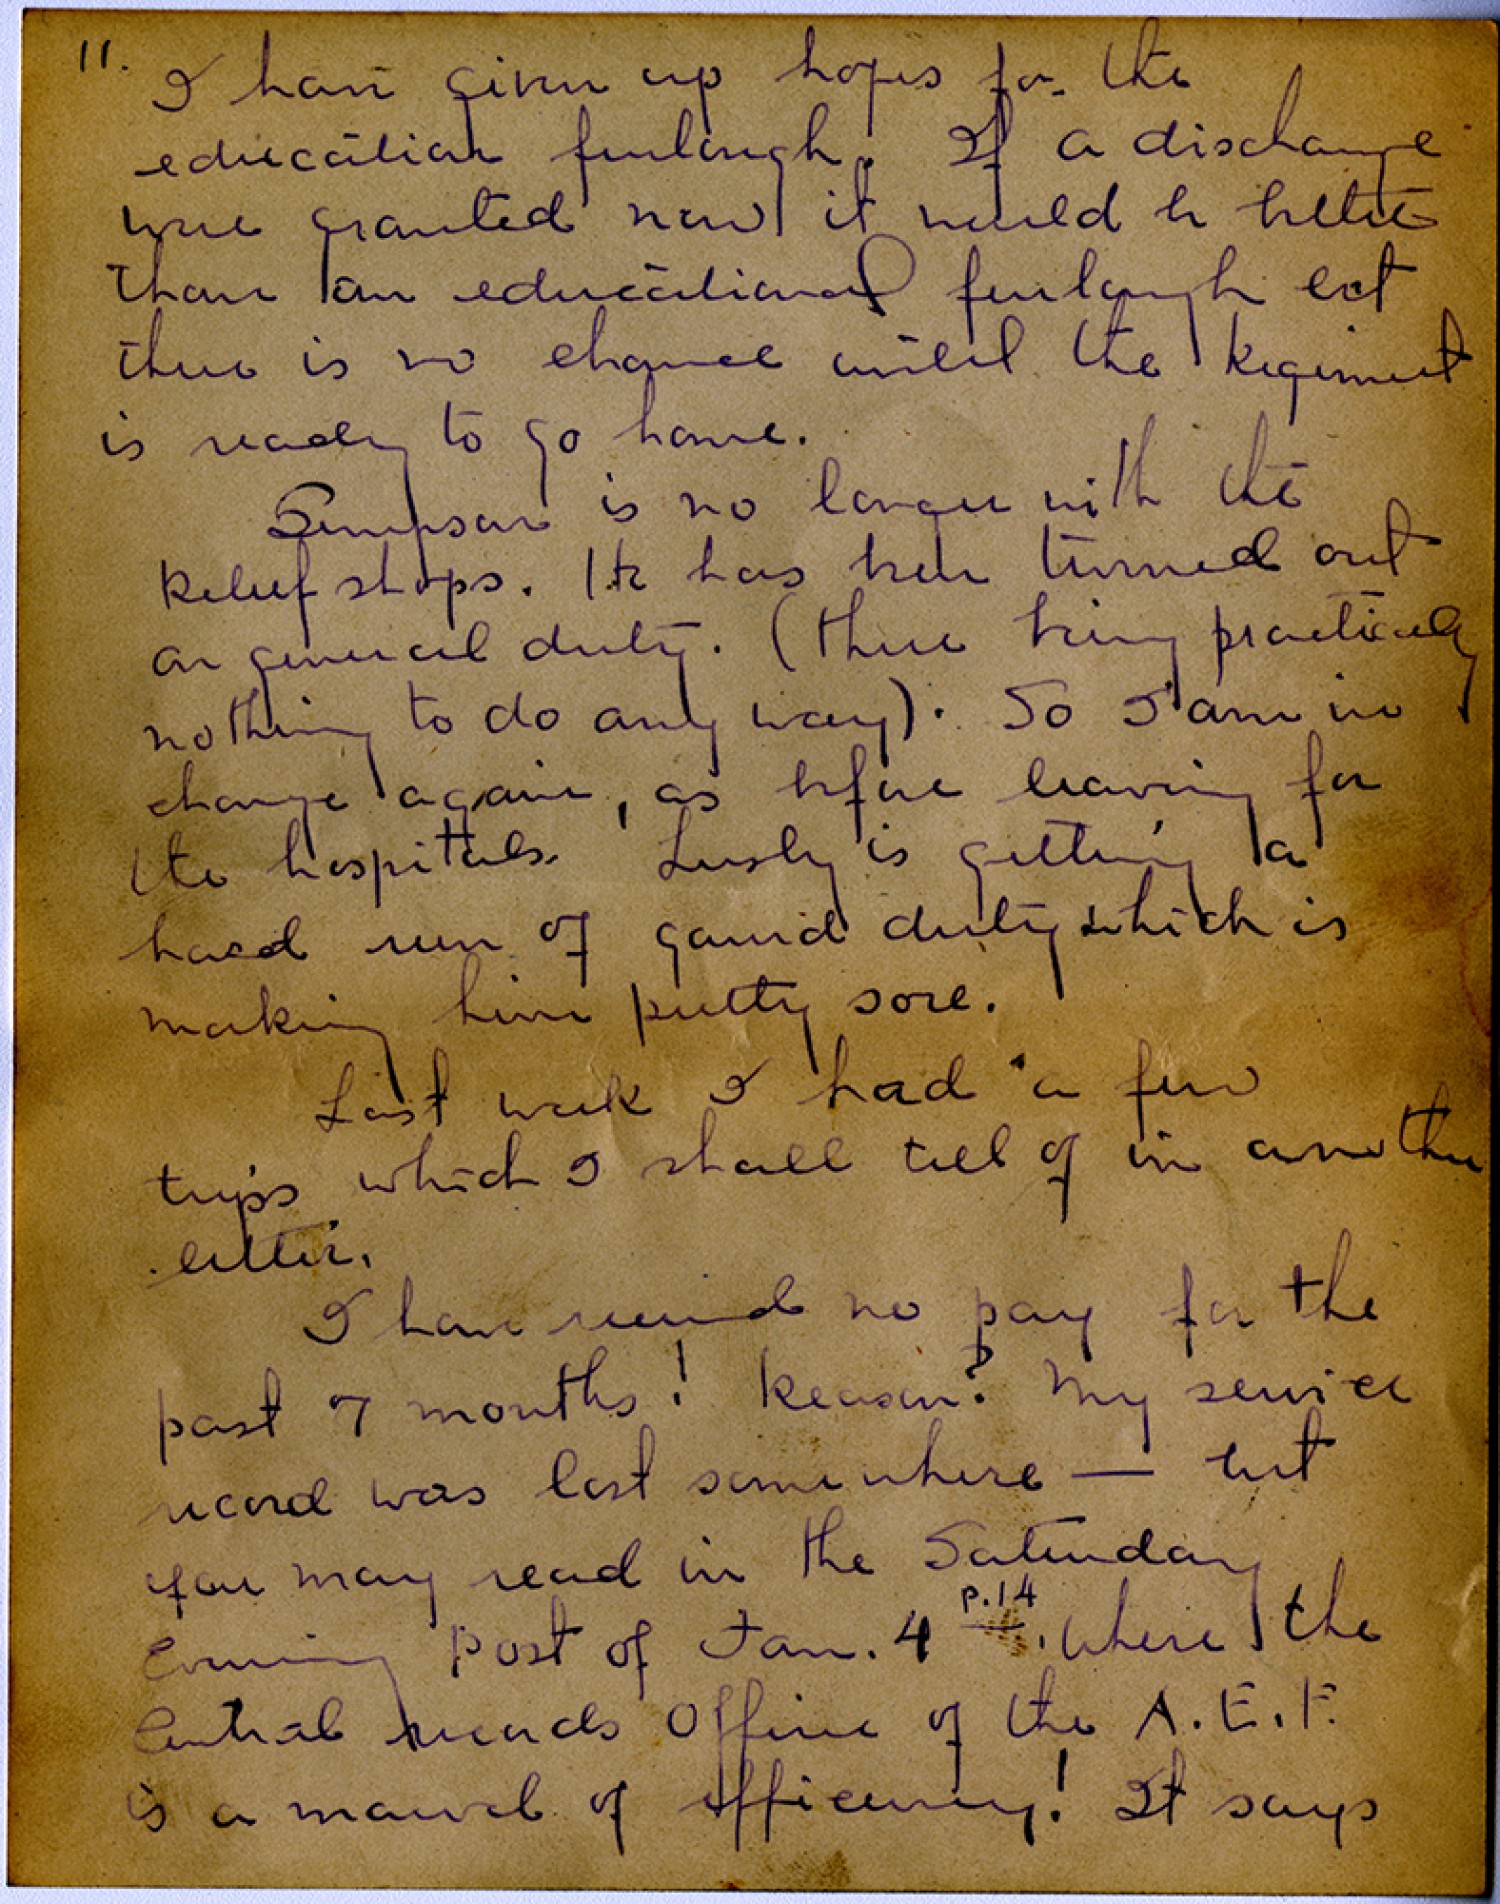 11.
I have given up hopes for the
education furlough. If a discharge
were granted now it would be better
than an educational furlough but
there is no chance until the Regiment
is ready to go home.
Simpson is no longer with the
Relief shops. He has been turned out
on general duty. (there being practically
nothing to do any way). So I am in
charge again, as before leaving for
the hospitals. Lusby is getting a
hard run of gaurd duty which is
making him pretty sore.
Last week I had a few
trips which I shall tell of in another
letter.
I have received no pay for the
past 7 months! Reason? My service
record was lost somewhere — but
you may read in the Saturday
p.14
Evening Post of Jan. 4 where the
Central records Office of the A.E.F.
is a marvel of efficiency! It says